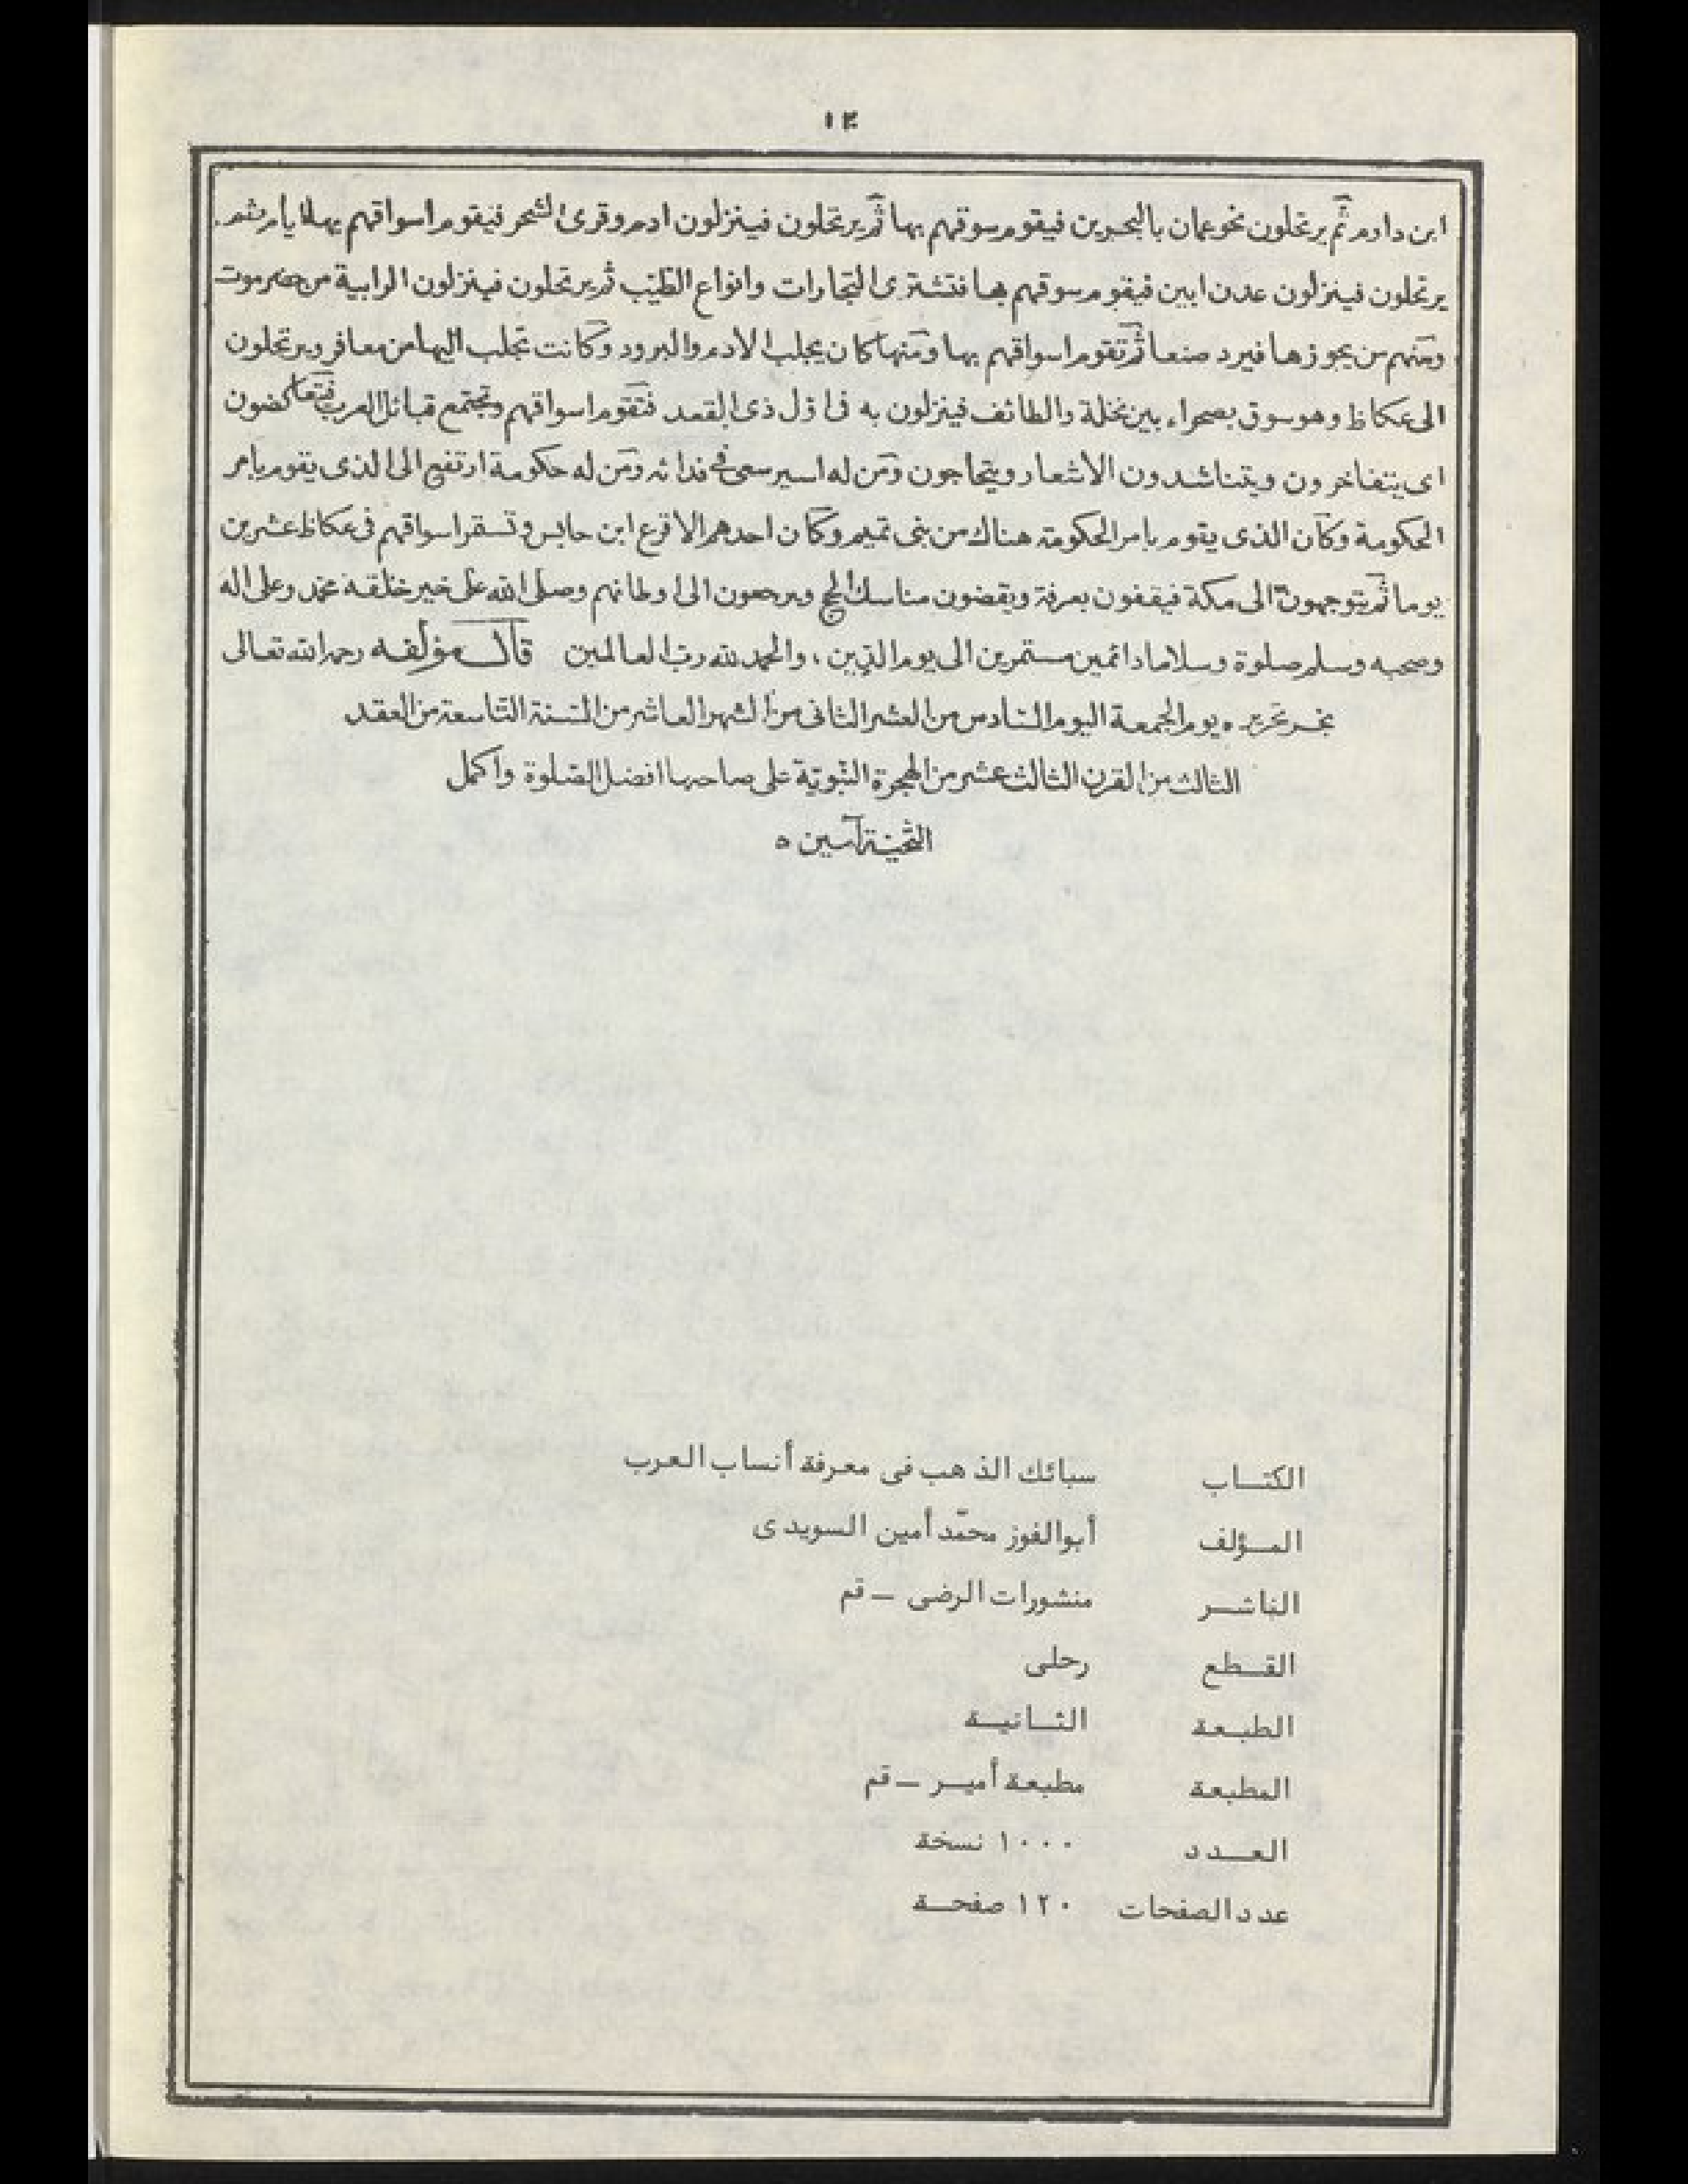 ابن دارم ثم يرتحلون نحو عمان بالبحرين فيقوم سوقهم بها ثم يرتحلون فينزلون ادم وقرى الشحر فيقوم اسواقهم بها اياما ثم
يرتحلون فينزلون عدن ابين فيقوم سوقهم بها فتشترى التجارات وانواع الطيب ثم يرتحلون فينزلون الرابية من حضرموت
ومنهم من يجوزها فيرد صنعا ثم تقوم اسواقهم بها ومنها كان يجلب الادم والبرود وكانت تجلب اليها من معافر ويرتحلون
الى عكاظ وهو سوق بصحراء بين نخلة والطائف فينزلون به فى اول ذى القعد فتقوم اسواقهم وتجتمع قبائل العرب فيتعاكضون
اى يتفاخرون ويتناشدون الاشعار ويتحاجون ومن له اسير سعى فى فدائه ومن له حكومة ارتفع الى الذى يقوم بامر
الحكومة وكان الذى يقوم بامر الحكومة هناك من بنى تميم وكان احدهم الاقرع ابن حابس وتستقر اسواقهم فى عكاظ عشرين
يوما ثم يتوجهون الى مكة فيقفون بعرفة ويقضون مناسك الحج ويرجعون الى اوطانهم وصلى الله على خير خلقه محمد وعلى اله
وصحبه وسلم صلوة وسلاما دائمين مستمرين الى يوم الدين ، والحمد لله رب العالمين قال مؤلفه رحمه الله تعالى
نجز تحريره يوم الجمعة اليوم السادس من العشر الثانى من الشهر العاشر من السنة التاسعة من العقد
الثالث من القرن الثالث عشر من الهجرة النبوية على صاحبها افضل الصلوة واكمل
التحية آمين ه
الكتاب سبائك الذهب فى معرفة أنساب العرب
المؤلف أبوالفوز محمّد أمين السويدى
الناشر منشورات الرضى – قم
القطع رحلى
الطبعة الثانية
المطبعة مطبعة أمير – قم
العدد ١٠٠٠ نسخة
عدد الصفحات ١٢٠ صفحة